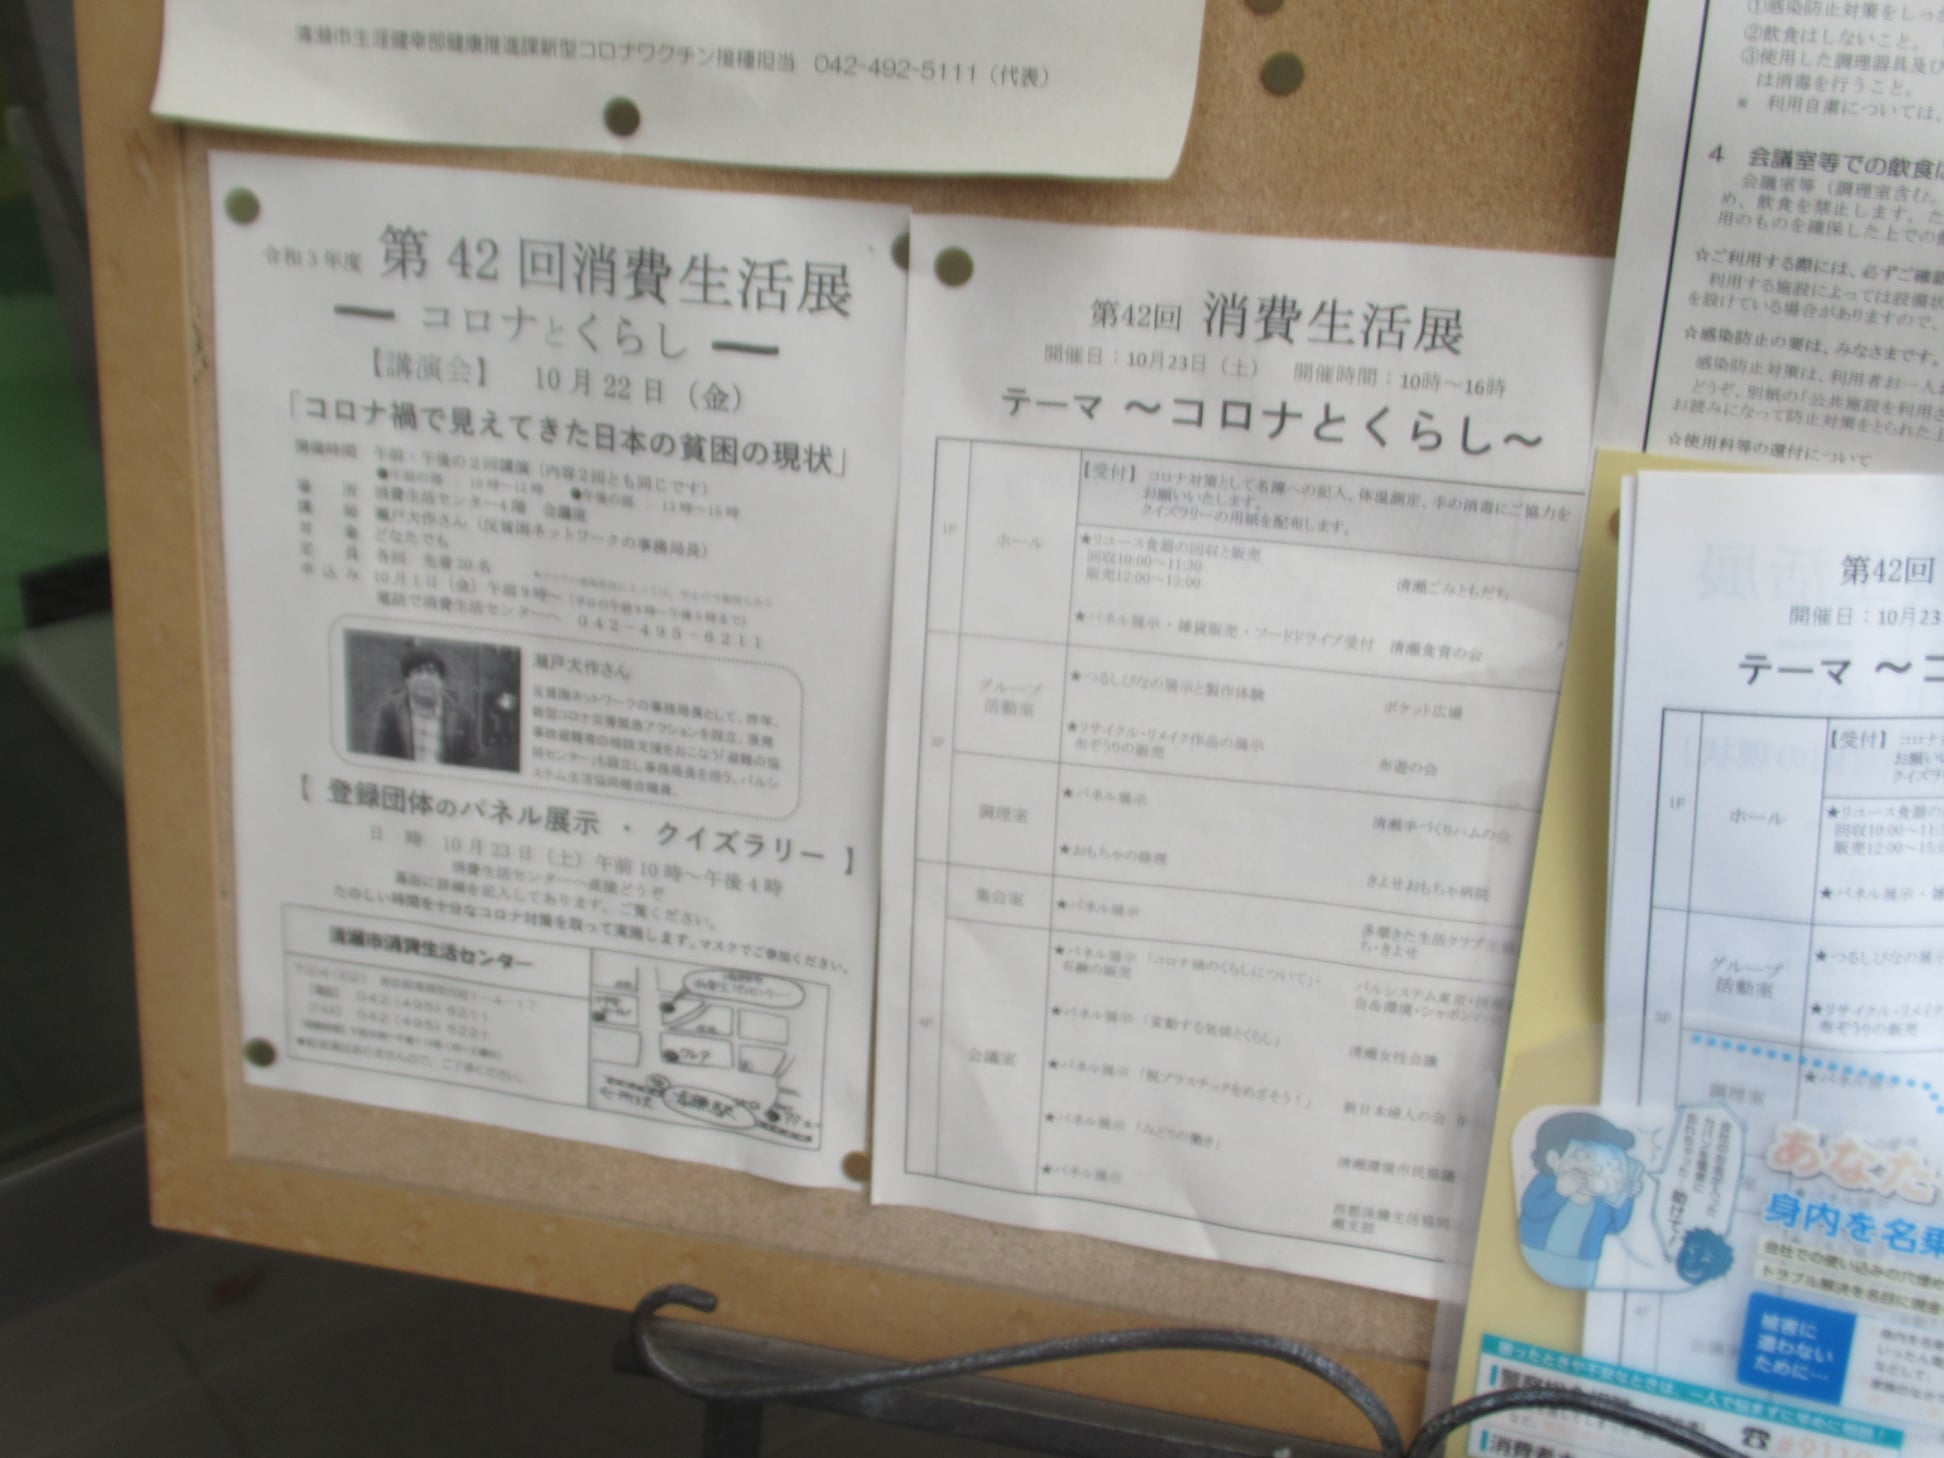 清瀬市生涯健幸部健康推進課新型コロナワクチン接種担当　042-492-5111（代表）
令和3年度 第42回消費生活展
― コロナとくらし ―
【講演会】　10月22日（金）
「コロナ禍で見えてきた日本の貧困の現状」
開催時間　午前・午後の2回講演（内容2回とも同じです）
●午前の部：10時～12時　●午後の部：13時～15時
場所　消費生活センター4階　会議室
講師　瀬戸大作さん（反貧困ネットワークの事務局長）
対象　どなたでも
定員　各回　先着20名
申込み　10月1日（金）午前9時～（平日の午前9時～午後5時まで）
電話で消費生活センターへ　042-495-6211
瀬戸大作さん
反貧困ネットワークの事務局長として、昨年、
新型コロナ災害緊急アクションを設立、原発
事故避難者の相談支援をおこなう「避難の協
同センター」も設立し事務局長を担う。パルシ
ステム生活協同組合職員。
【 登録団体のパネル展示 ・ クイズラリー 】
日　時　10月23日（土）午前10時～午後4時
消費生活センターへ直接どうぞ
裏面に詳細を記入してあります。ご覧ください。
たのしい時間を十分なコロナ対策を取って実施します。マスクでご参加ください。
清瀬市消費生活センター
042(495)6211
042(495)6221
第42回 消費生活展
開催日：10月23日（土）　開催時間：10時～16時
テーマ ～コロナとくらし～
1F
ホール
【受付】 コロナ対策として名簿への記入、体温測定、手の消毒にご協力を
お願いいたします。
クイズラリーの用紙を配布します。
★リユース食器の回収と販売
回収10:00～11:30
販売12:00～15:00
清瀬ごみともだち
★パネル展示・雑貨販売・フードドライブ受付　清瀬食育の会
3F
グループ
活動室
★つるしびなの展示と製作体験　ポケット広場
★リサイクル・リメイク作品の展示
布ぞうりの販売
布遊の会
調理室
★パネル展示　清瀬手づくりハムの会
★おもちゃの修理　きよせおもちゃ病院
集会室
★パネル展示
多摩きた生活クラブ
ち・きよせ
4F
会議室
★パネル展示「コロナ禍のくらしについて」
石鹸の販売
パルシステム東京・
会＆環境・シャボンの
★パネル展示「変動する気候とくらし」　清瀬女性会議
★パネル展示「脱プラスチックをめざそう！」　新日本婦人の会
★パネル展示「みどりの働き」　清瀬環境市民協議
★パネル展示
①感染防止対策をしっか
②飲食はしないこと。
③使用した調理器具及び
は消毒を行うこと。
※　利用自粛については、
4　会議室等での飲食は
会議室等（調理室含む。
め、飲食を禁止します。た
用のものを確保した上での
☆ご利用する際には、必ずご確認
利用する施設によっては設備状
を設けている場合がありますので、
☆感染防止の要は、みなさまです。
感染防止対策は、利用者お一人
どうぞ、別紙の「公共施設を利用さ
お読みになって防止対策をとられた上
☆使用料等の還付について
第42回
開催日：10月23
テーマ ～コ
1F
ホール
【受付】 コロナ
お願い
クイズラ
★リユース食器の
回収10:00～11:3
販売12:00～15:0
★パネル展示・雑
グループ
活動室
3F
★つるしびなの展示
★リサイクル・リメイク
布ぞうりの販売
調理室
★パネル展示
助けて！
あなた
身内を名乗
会社での使い込みの穴埋め
トラブル解決を名目に現金
被害に
遭わない
ために…
困ったときや不安なときは、一人で悩まずに早めに相談！
☎ #9110
消費者